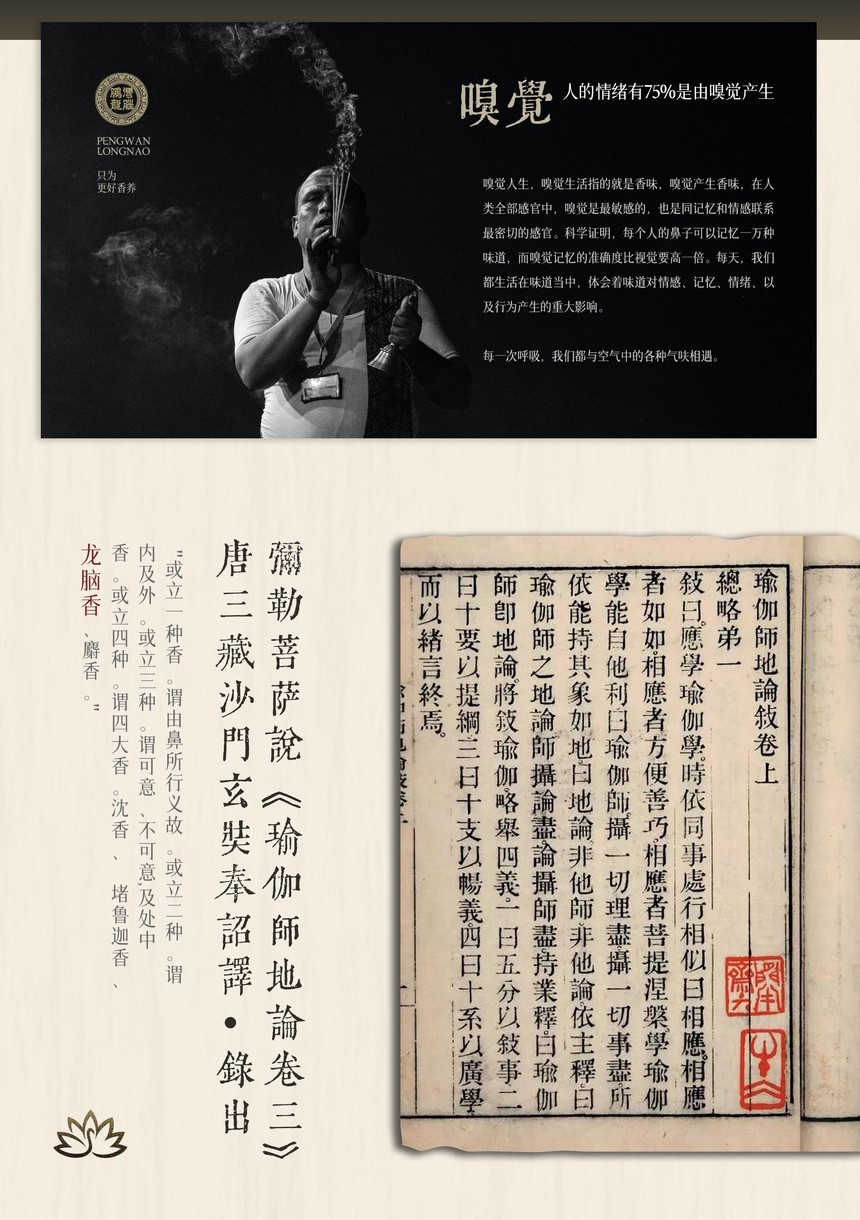 PENGWAN
LONGNAO
只为
更好香养
嗅覺
人的情绪有75%是由嗅觉产生
嗅觉人生，嗅觉生活指的就是香味，嗅觉产生香味，在人
类全部感官中，嗅觉是最敏感的，也是同记忆和情感联系
最密切的感官。科学证明，每个人的鼻子可以记忆一万种
味道，而嗅觉记忆的准确度比视觉要高一倍。每天，我们
都生活在味道当中，体会着味道对情感、记忆、情绪、以
及行为产生的重大影响。
每一次呼吸，我们都与空气中的各种气味相遇。
彌勒菩萨說《瑜伽師地論卷三》
唐三藏沙門玄奘奉詔譯•錄出
"或立一种香。谓由鼻所行义故。或立二种。谓
内及外。或立三种。谓可意、不可意,及处中
香。或立四种。谓四大香。沈香、堵鲁迦香、
龙脑香、麝香。"
瑜伽師地論敍卷上
總略弟一
敍曰。應學瑜伽學。時依同事處行相似曰相應。相應
者如如。相應者方便善巧。相應者菩提涅槃。學瑜伽
學能自他利曰瑜伽師。攝一切理盡。攝一切事盡。所
依能持其象如地。曰地論。非他師非他論。依主釋。曰
瑜伽師之地論師攝論盡。論攝師盡。持業釋。曰瑜伽
師卽地論。將敍瑜伽。略舉四義。一曰五分以敍事二
曰十要以提綱三曰十支以暢義。四曰十系以廣學。
而以緒言終焉。